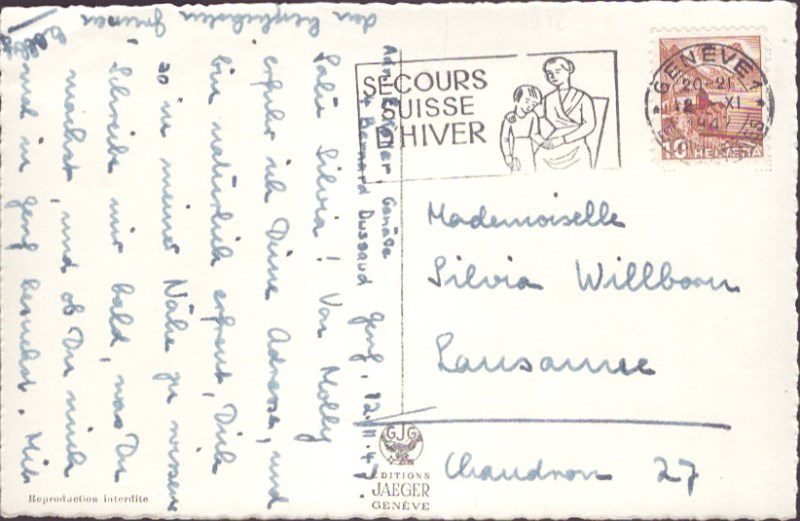 SECOURS
SUISSE
D'HIVER
GENEVE 1
20-21
12 XI
10 HELVETIA
Mademoiselle
Silvia Willboorn
Lausanne
Chaudron 27
Genf, 12.11.47.
Bernard Dussaud
Genève
Salü Silvia! Von Molly
erfuhr ich Deine Adresse, und
bin natürlich erfreut, Dich
so in meiner Nähe zu wissen
Schreib mir bald, was Du
machst, und ob Du mich
mal in Genf besuchst. Mit
den herzlichsten Grüssen
GJG
EDITIONS
JAEGER
GENÈVE
Reproduction interdite